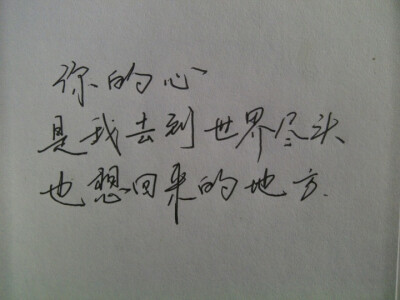 你的心
是我去到世界尽头
也想回来的地方.